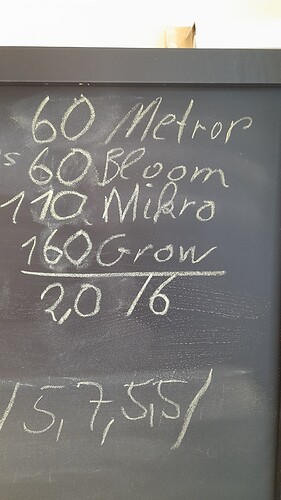 60 Metrop
s 60 Bloom
110 Mikro
160 Grow
2,0 16
/5,7,5,5/